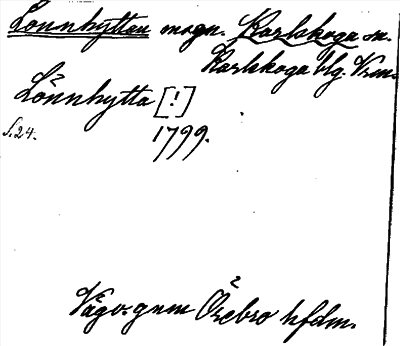 Lönnhyttan mogn. Karlskoga sn.
Karlskoga blg. Vrm.
Lönnhytta [!]
S. 24. 1799.
Vägv. gnm Örebro hfdm.